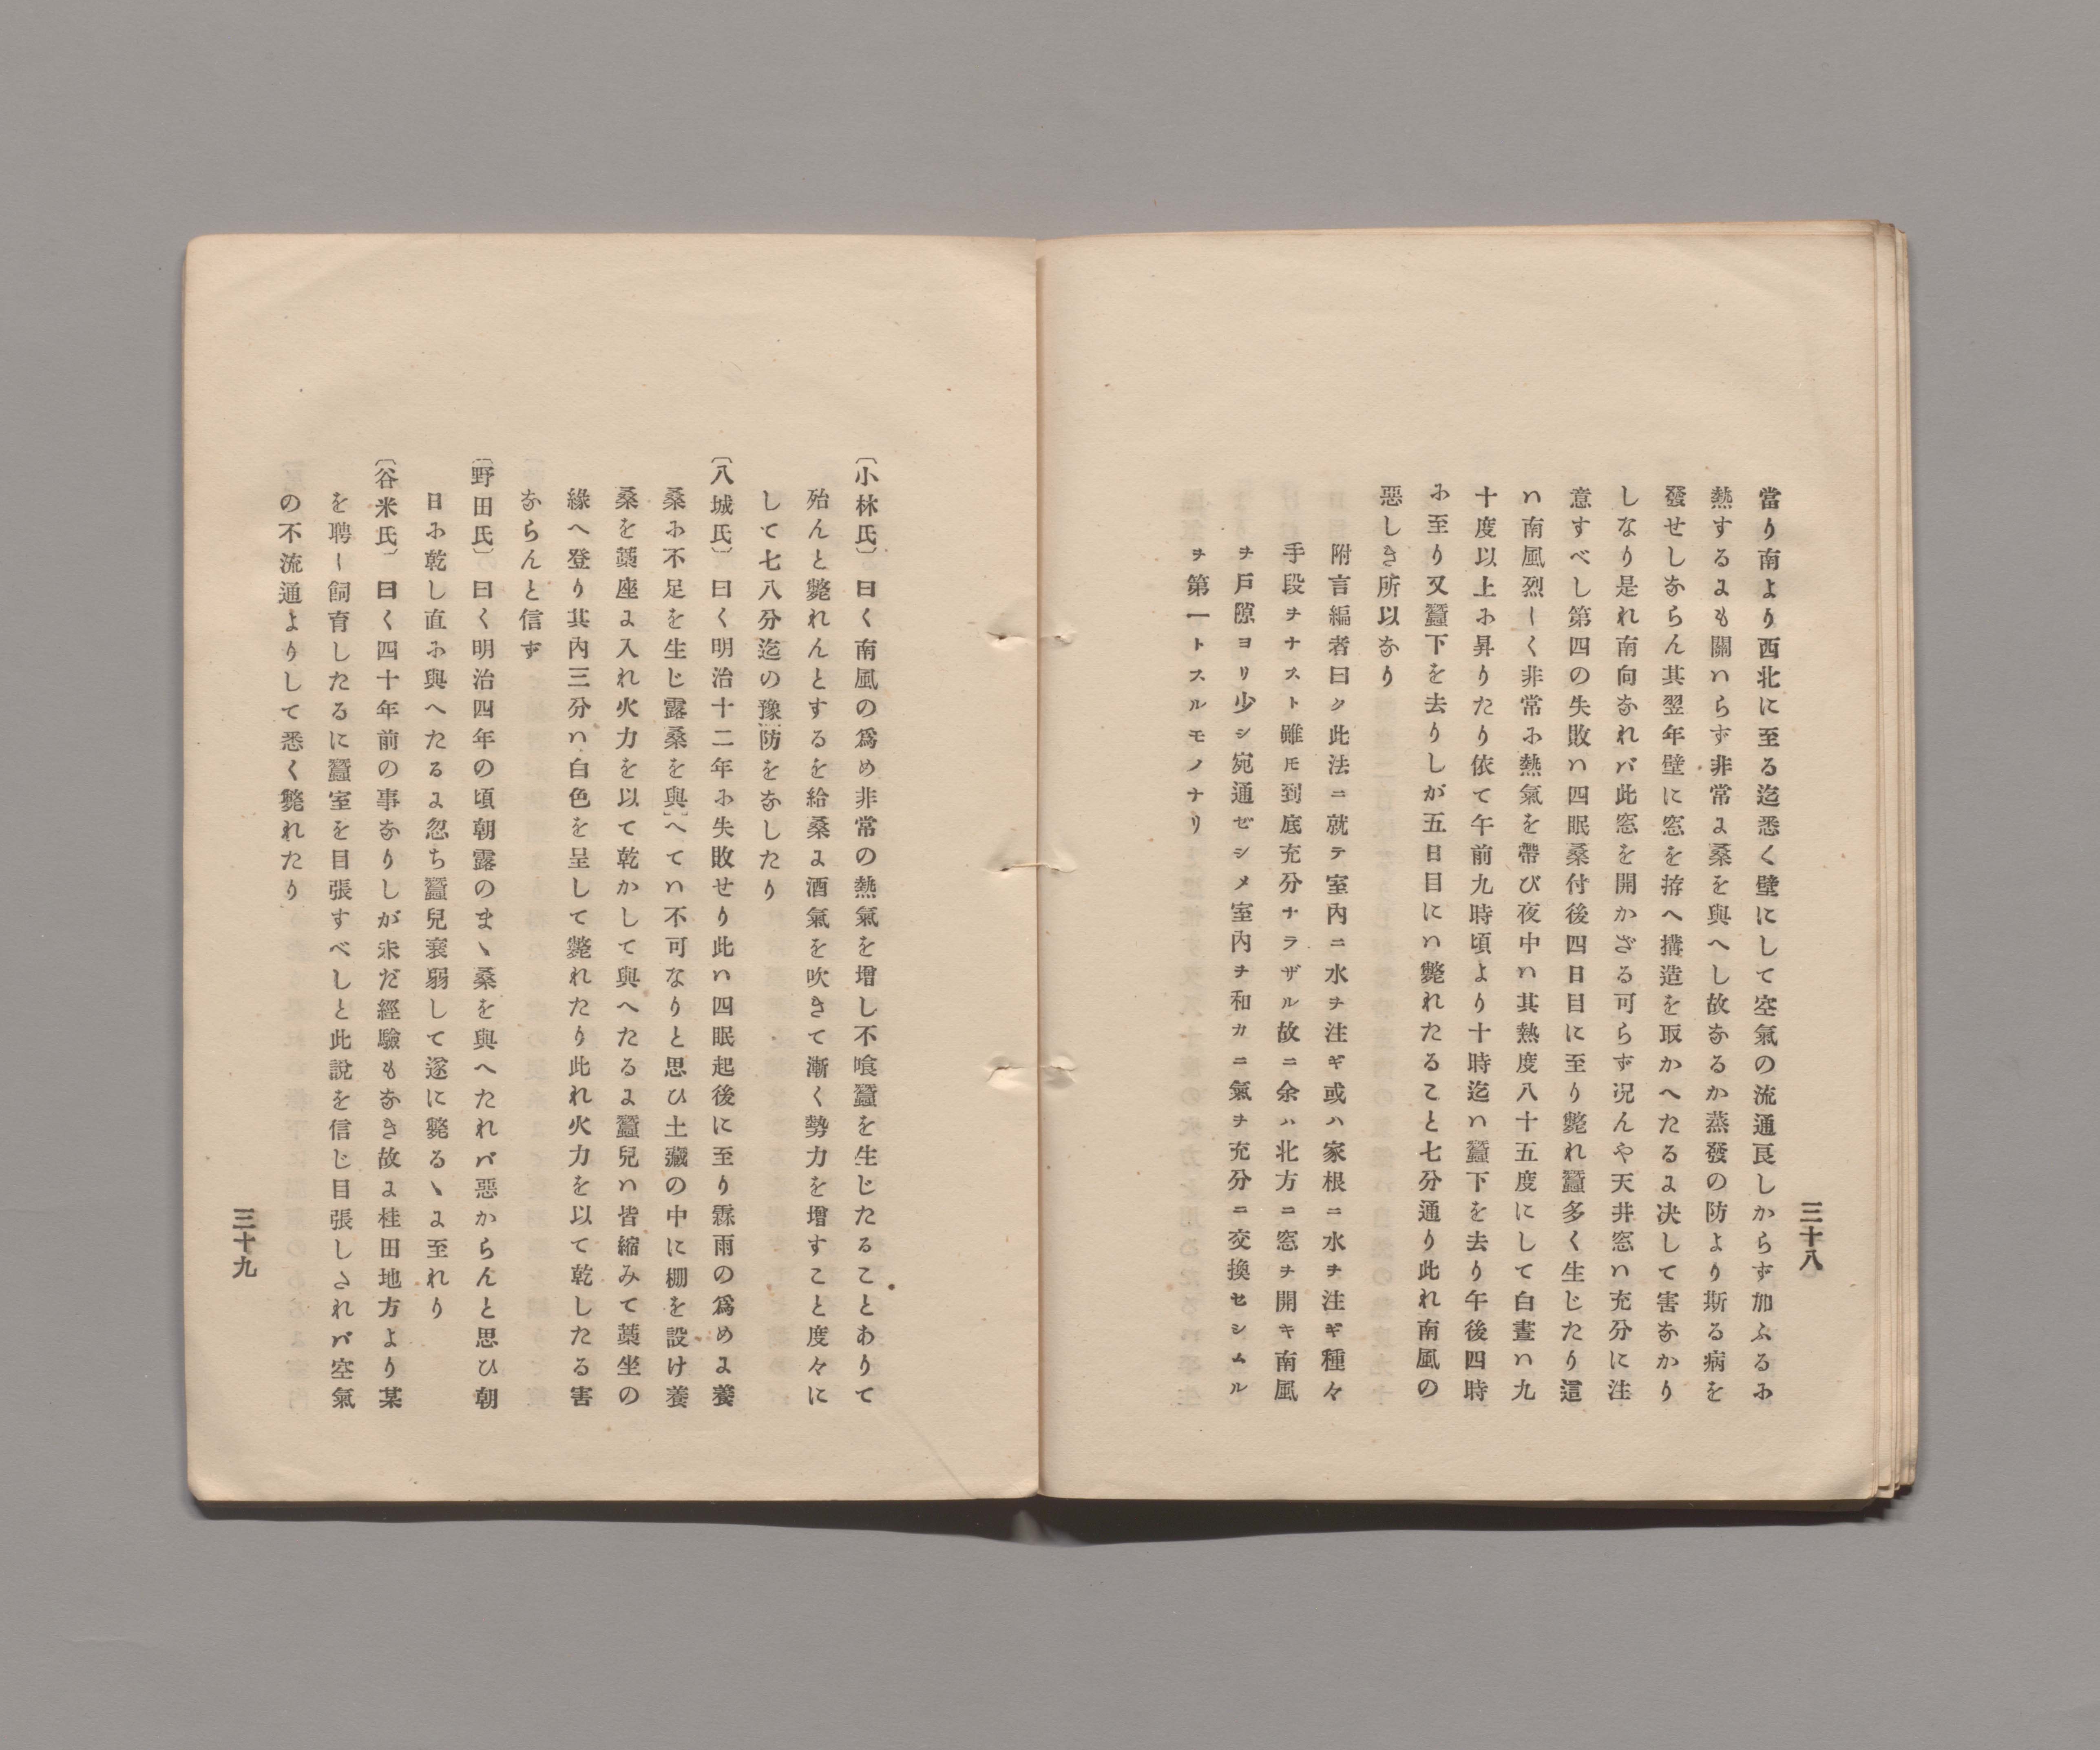 三十八
當り南より西北に至る迄悉く壁にして空氣の流通良しからず加ふるに
熱するにも關はらず非常に桑を與へし故なるか蒸發の防より斯る病を
發せしならん其翌年壁に窓を拵へ搆造を取かへたるに决して害なかり
しなり是れ南向なれバ此窓を開かざる可らず况んや天井窓は充分に注
意すべし第四の失敗は四眠桑付後四日目に至り斃れ蠶多く生じたり這
は南風烈しく非常に熱氣を帶び夜中は其熱度八十五度にして白晝は九
十度以上に昇りたり依て午前九時頃より十時迄は蠶下を去り午後四時
に至り又蠶下を去りしが五日目には斃れたること七分通り此れ南風の
惡しき所以なり
附言編者曰ク此法ニ就テ室內ニ水ヲ注ギ或ハ家根ニ水ヲ注ギ種々
手段ヲナスト雖モ到底充分ナラザル故ニ余ハ北方ニ窓ヲ開キ南風
ヲ戶隙ヨリ少シ宛通ゼシメ室內ヲ和カニ氣ヲ充分ニ交換セシムル
ヲ第一トスルモノナリ
〔小林氏〕曰く南風の爲め非常の熱氣を增し不喰蠶を生じたることありて
殆んと斃れんとするを給桑に酒氣を吹きて漸く勢力を增すこと度々に
して七八分迄の豫防をなしたり
〔八城氏〕曰く明治十二年に失敗せり此は四眠起後に至り霖雨の爲めに養
桑に不足を生じ露桑を與へては不可なりと思ひ土藏の中に棚を設け養
桑を藁座に入れ火力を以て乾かして與へたるに蠶兒は皆縮みて藁坐の
緣へ登り其內三分は白色を呈して斃れたり此れ火力を以て乾したる害
ならんと信ず
〔野田氏〕曰く明治四年の頃朝露のまゝ桑を與へたれバ惡からんと思ひ朝
日に乾し直に與へたるに忽ち蠶兒衰弱して遂に斃るゝに至れり
〔谷米氏〕曰く四十年前の事なりしが未だ經驗もなき故に桂田地方より某
を聘し飼育したるに蠶室を目張すべしと此說を信じ目張しされバ空氣
の不流通よりして悉く斃れたり
三十九